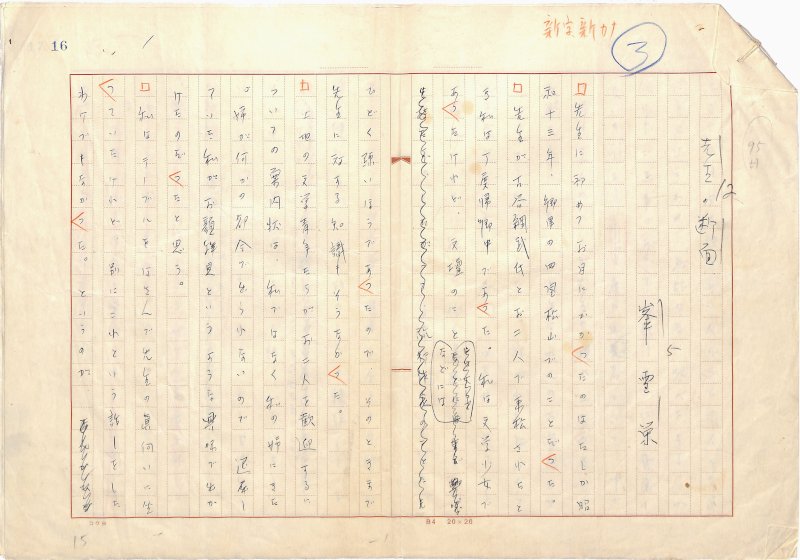 新字新カナ
3
16
先生の断面
12
峯雪栄
5
先生に初めてお目にかかったのはたしか昭
和十三年、郷里の四国松山でのことだった。
先生が古谷綱武氏とお二人で来松されたと
き私は丁度帰郷中であった。私は文学少女で
あったけれど、文壇のこと
などには
ひどく疎いほうであったので、そのときまで
先生に対する知識もそうなかった。
土地の文学青年たちがお二人を歓迎するに
ついての案内状は、私ではなく私の姉にきた
。姉が何かの都合で出られないので、退屈し
ていた私がお顔拝見というような興味で出か
けたのだったと思う。
私はテーブルをはさんで先生の真向いに坐
っていたけれど、別にこれという話しをした
わけでもなかった。というのが
コクヨ
B4 20×20
15